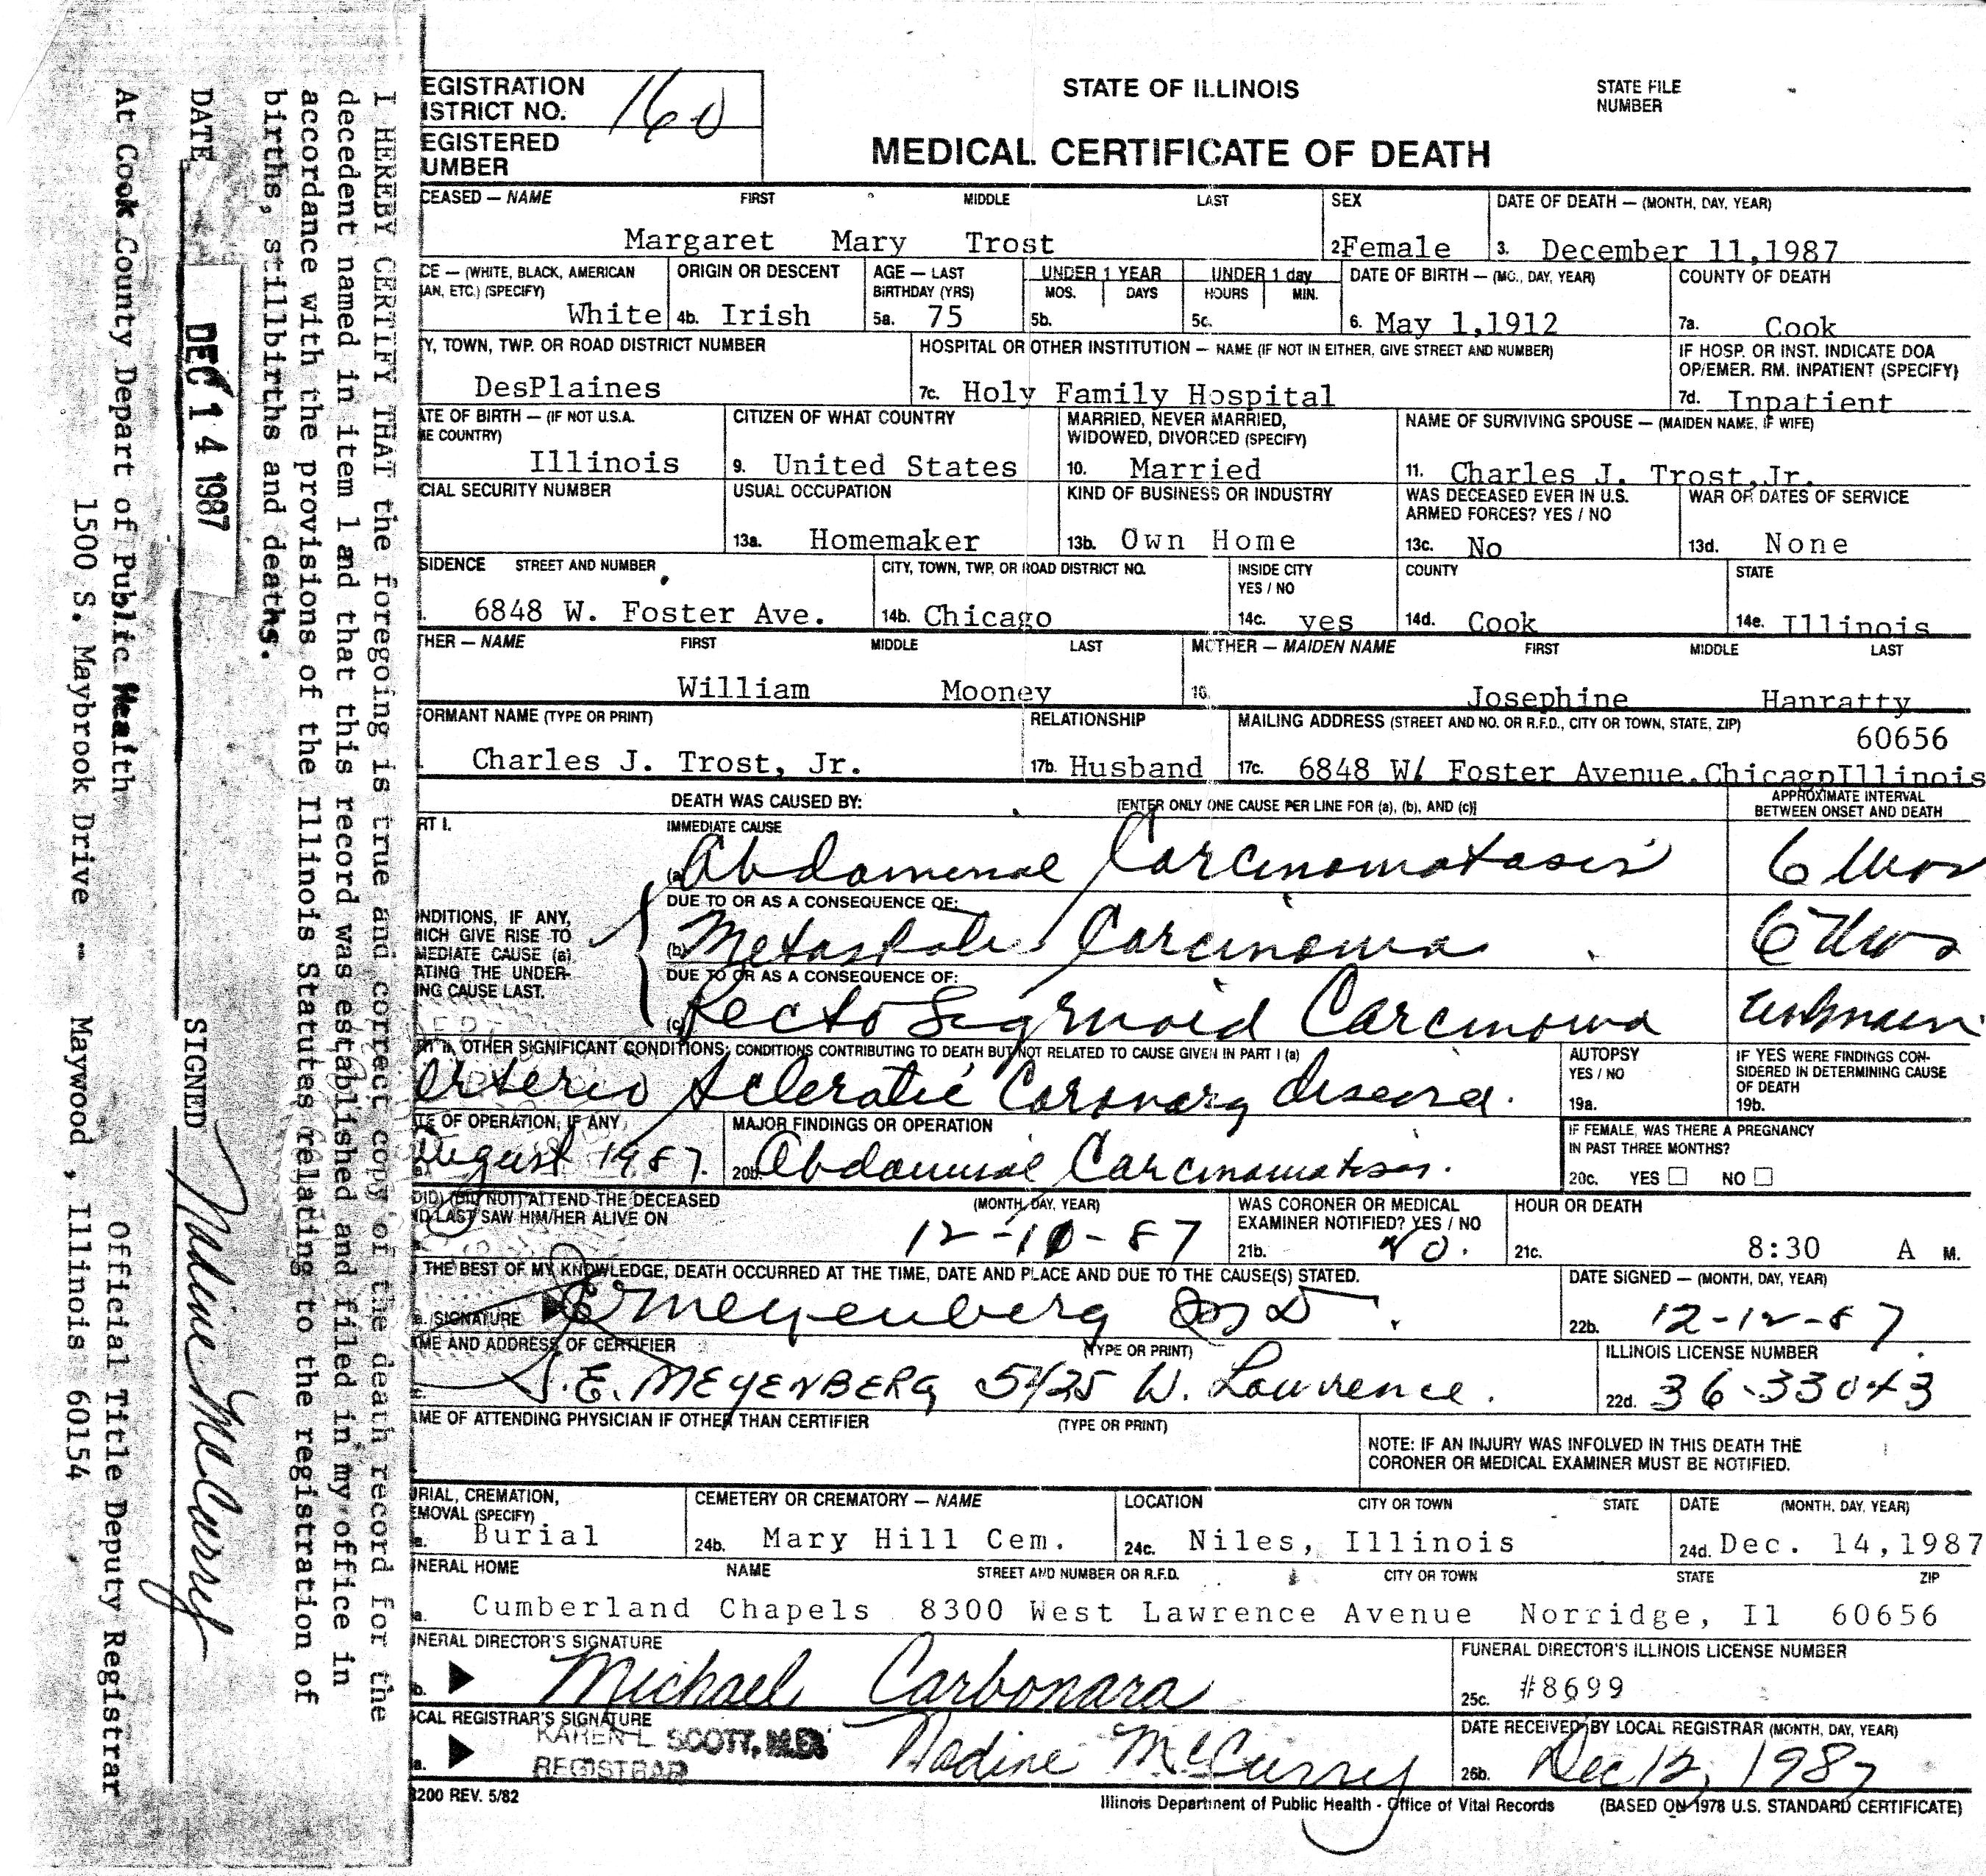 EGISTRATION
ISTRICT NO. 160
EGISTERED
UMBER
STATE OF ILLINOIS
STATE FILE
NUMBER
MEDICAL CERTIFICATE OF DEATH
CEASED — NAME FIRST MIDDLE LAST SEX DATE OF DEATH — (MONTH, DAY, YEAR)
Margaret Mary Trost 2. Female 3. December 11,1987
CE — (WHITE, BLACK, AMERICAN ORIGIN OR DESCENT AGE — LAST UNDER 1 YEAR UNDER 1 day DATE OF BIRTH — (MO., DAY, YEAR) COUNTY OF DEATH
IAN, ETC.) (SPECIFY) BIRTHDAY (YRS) MOS. DAYS HOURS MIN.
White 4b. Irish 5a. 75 5b. 5c. 6. May 1,1912 7a. Cook
Y, TOWN, TWP. OR ROAD DISTRICT NUMBER HOSPITAL OR OTHER INSTITUTION — NAME (IF NOT IN EITHER, GIVE STREET AND NUMBER) IF HOSP. OR INST. INDICATE DOA
OP/EMER. RM. INPATIENT (SPECIFY)
DesPlaines 7c. Holy Family Hospital 7d. Inpatient
ATE OF BIRTH — (IF NOT U.S.A. CITIZEN OF WHAT COUNTRY MARRIED, NEVER MARRIED, NAME OF SURVIVING SPOUSE — (MAIDEN NAME, IF WIFE)
ME COUNTRY) WIDOWED, DIVORCED (SPECIFY)
Illinois 9. United States 10. Married 11. Charles J. Trost,Jr.
CIAL SECURITY NUMBER USUAL OCCUPATION KIND OF BUSINESS OR INDUSTRY WAS DECEASED EVER IN U.S. WAR OR DATES OF SERVICE
ARMED FORCES? YES / NO
13a. Homemaker 13b. Own Home 13c. No 13d. None
SIDENCE STREET AND NUMBER CITY, TOWN, TWP, OR ROAD DISTRICT NO. INSIDE CITY COUNTY STATE
YES / NO
6848 W. Foster Ave. 14b. Chicago 14c. yes 14d. Cook 14e. Illinois
THER — NAME FIRST MIDDLE LAST MOTHER — MAIDEN NAME FIRST MIDDLE LAST
William Mooney 16. Josephine Hanratty
FORMANT NAME (TYPE OR PRINT) RELATIONSHIP MAILING ADDRESS (STREET AND NO. OR R.F.D., CITY OR TOWN, STATE, ZIP)
60656
Charles J. Trost, Jr. 17b. Husband 17c. 6848 W/ Foster Avenue,ChicagoIllinois
DEATH WAS CAUSED BY: [ENTER ONLY ONE CAUSE PER LINE FOR (a), (b), AND (c)] APPROXIMATE INTERVAL
BETWEEN ONSET AND DEATH
RT I. IMMEDIATE CAUSE
(a) Abdomenal Carcinomatosis 6 Mos
DUE TO OR AS A CONSEQUENCE OF:
NDITIONS, IF ANY,
HICH GIVE RISE TO
MEDIATE CAUSE (a)
ATING THE UNDER-
ING CAUSE LAST.
(b) Metastatic Carcinoma 6 Mos
DUE TO OR AS A CONSEQUENCE OF:
(c) Recto Sigmoid Carcinoma
OTHER SIGNIFICANT CONDITIONS: CONDITIONS CONTRIBUTING TO DEATH BUT NOT RELATED TO CAUSE GIVEN IN PART I (a) AUTOPSY IF YES WERE FINDINGS CON-
YES / NO SIDERED IN DETERMINING CAUSE
OF DEATH
Arterio Scleratic Coronary disease. 19a. 19b.
TE OF OPERATION, IF ANY MAJOR FINDINGS OR OPERATION IF FEMALE, WAS THERE A PREGNANCY
IN PAST THREE MONTHS?
August 1987. 20b. Abdominal Carcinomatosis. 20c. YES NO
DID) (DID NOT) ATTEND THE DECEASED (MONTH, DAY, YEAR) WAS CORONER OR MEDICAL HOUR OR DEATH
ND LAST SAW HIM/HER ALIVE ON EXAMINER NOTIFIED? YES / NO
12-10-87 21b. NO. 21c. 8:30 A M.
THE BEST OF MY KNOWLEDGE, DEATH OCCURRED AT THE TIME, DATE AND PLACE AND DUE TO THE CAUSE(S) STATED. DATE SIGNED — (MONTH, DAY, YEAR)
a. SIGNATURE Meyenberg MD 22b. 12-12-87
AME AND ADDRESS OF CERTIFIER (TYPE OR PRINT) ILLINOIS LICENSE NUMBER
S.E. MEYENBERG 5425 W. Lawrence. 22d. 36-33043
AME OF ATTENDING PHYSICIAN IF OTHER THAN CERTIFIER (TYPE OR PRINT)
NOTE: IF AN INJURY WAS INVOLVED IN THIS DEATH THE
CORONER OR MEDICAL EXAMINER MUST BE NOTIFIED.
URIAL, CREMATION, CEMETERY OR CREMATORY — NAME LOCATION CITY OR TOWN STATE DATE (MONTH, DAY, YEAR)
EMOVAL (SPECIFY)
a. Burial 24b. Mary Hill Cem. 24c. Niles, Illinois 24d. Dec. 14,1987
NERAL HOME NAME STREET AND NUMBER OR R.F.D. CITY OR TOWN STATE ZIP
a. Cumberland Chapels 8300 West Lawrence Avenue Norridge, Il 60656
NERAL DIRECTOR'S SIGNATURE FUNERAL DIRECTOR'S ILLINOIS LICENSE NUMBER
b. Michael Carbonara 25c. #8699
CAL REGISTRAR'S SIGNATURE DATE RECEIVED BY LOCAL REGISTRAR (MONTH, DAY, YEAR)
KAREN L. SCOTT, M.D.
REGISTRAR
a. Nadine McCurry 26b. Dec 12, 1987
200 REV. 5/82 Illinois Department of Public Health - Office of Vital Records (BASED ON 1978 U.S. STANDARD CERTIFICATE)
I HEREBY CERTIFY THAT the foregoing is true and correct copy of the death record for the
decedent named in item 1 and that this record was established and filed in my office in
accordance with the provisions of the Illinois Statutes relating to the registration of
births, stillbirths and deaths.
DATE DEC 14 1987 SIGNED Nadine McCurry
At Cook County Depart of Public Health Official Title Deputy Registrar
1500 S. Maybrook Drive - Maywood, Illinois 60154